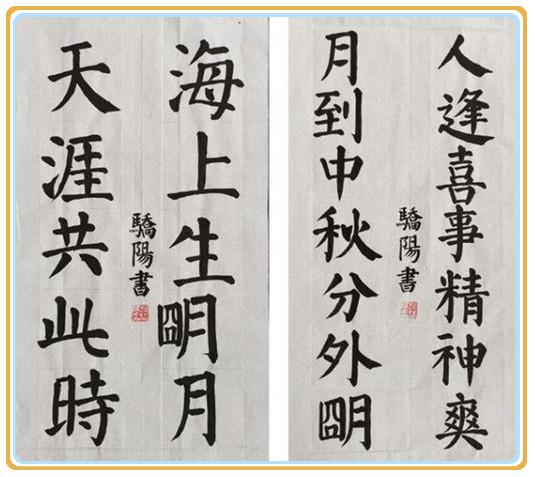 海上生朙月
天涯共此時
驕陽書
人逢喜事精神爽
月到中秋分外朙
驕陽書